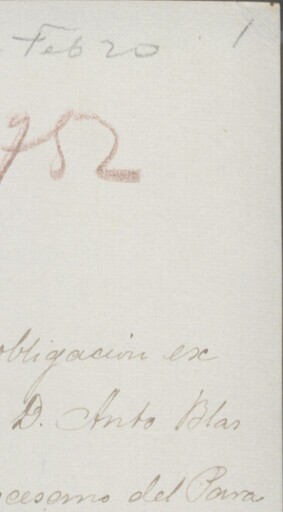 Febro 1
752
obligacion ex
D. Anto Blas
ocesamo del Para